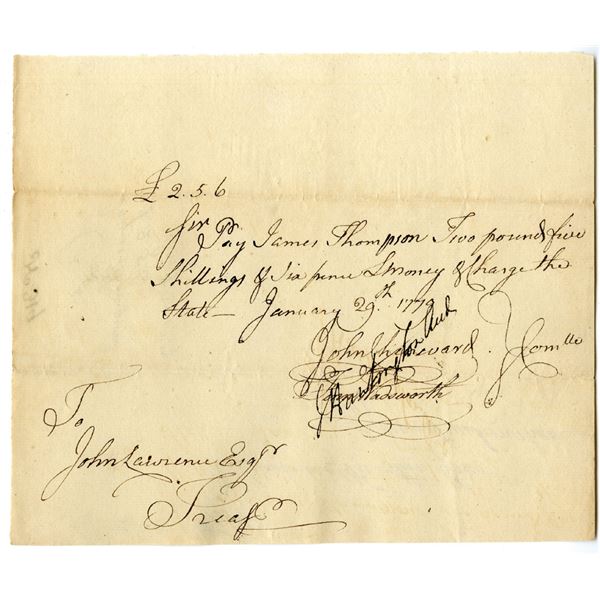 £ 2. 5. 6
Sir Pay James Thompson Two pound five
Shillings & Six pence Lmoney & Charge the
State — January 29th. 1779
John Chenevard Comtte
Huntington Aud
Wadsworth
To
John Lawrence Esqr
Treasr